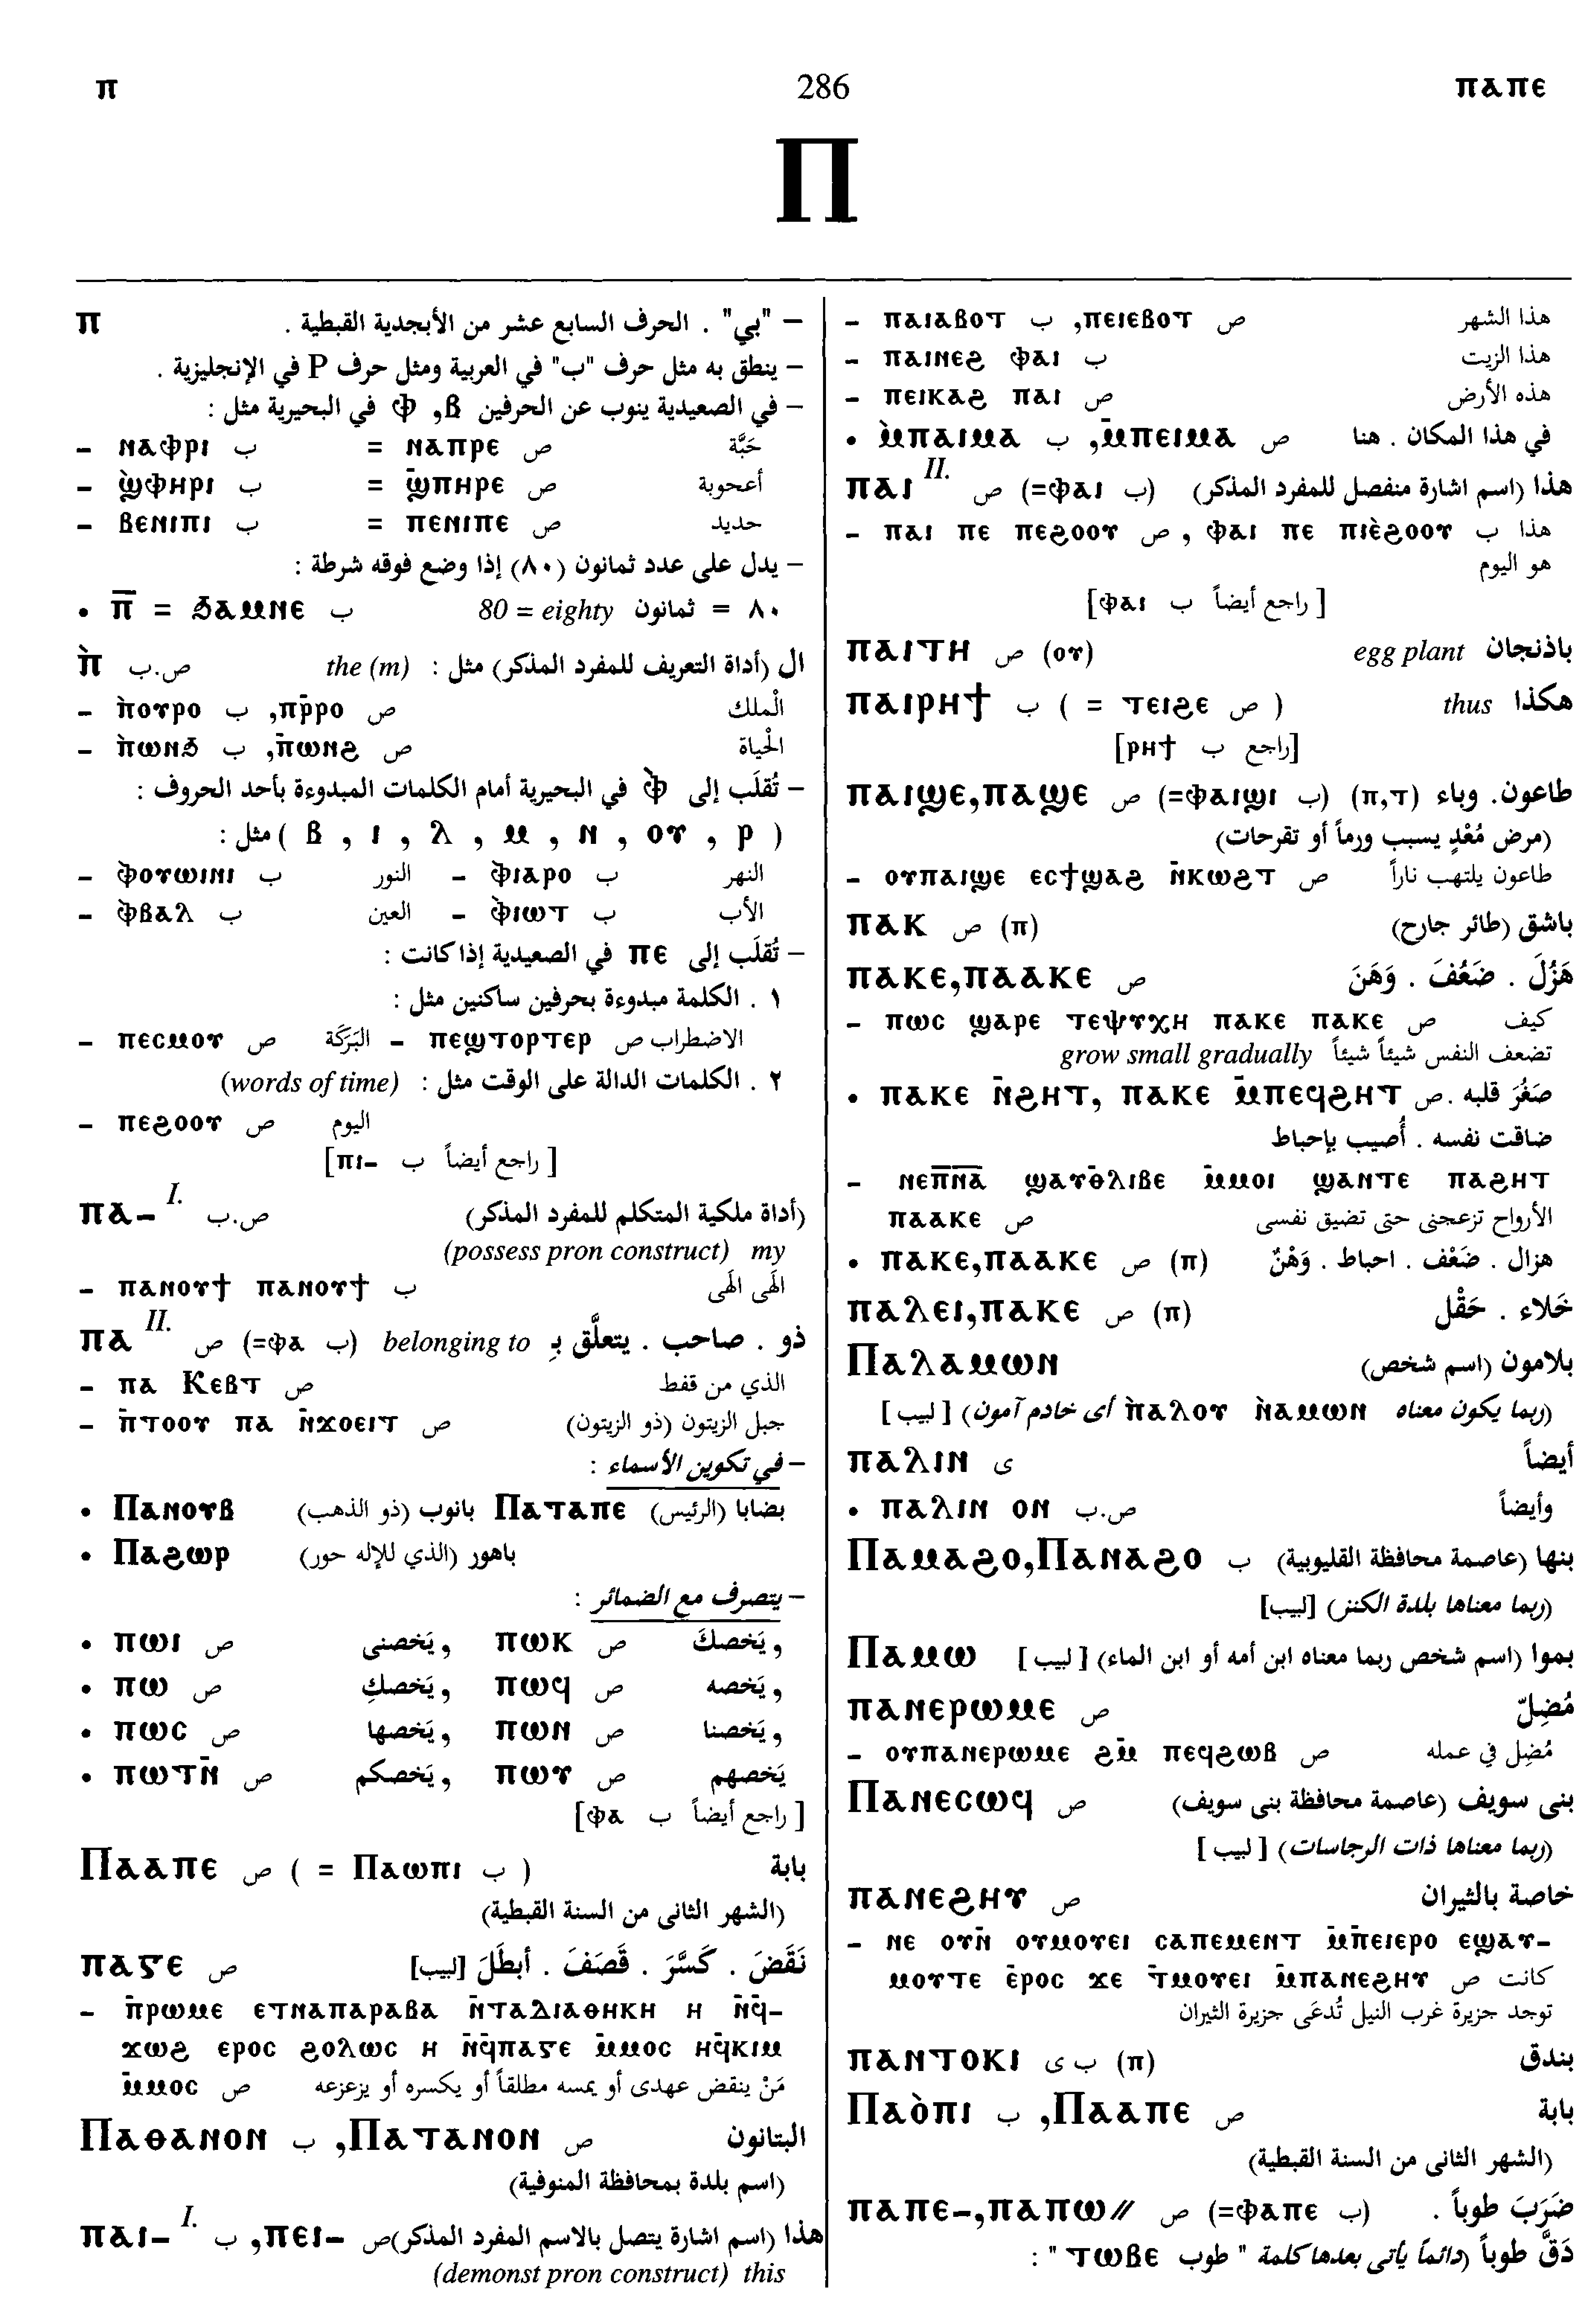 ⲡ 286 ⲡⲁⲡⲉ
Ⲡ
ⲡ – "بي" . الحرف السابع عشر من الأبجدية القبطية .
– ينطق به مثل حرف "ب" في العربية ومثل حرف P في الإنجليزية .
– في الصعيدية ينوب عن الحرفين ⲃ, ⲫ في البحيرية مثل :
– ⲛⲁⲫⲣⲓ ب = ⲛⲁⲡⲣⲉ ص حَبَّة
– ϣ̀ⲫⲏⲣⲓ ب = ϣ̄ⲡⲏⲣⲉ ص أعجوبة
– ⲃⲉⲛⲓⲡⲓ ب = ⲡⲉⲛⲓⲡⲉ ص حديد
– يدل على عدد ثمانون (٨٠) إذا وضع فوقه شرطة :
• ⲡ̅ = ϧⲁⲙⲛⲉ ب 80 = eighty ثمانون = ٨٠
ⲡ̀ ص.ب ال (أداة التعريف للمفرد المذكر) مثل : the (m)
– ⲡ̀ⲟⲩⲣⲟ ب ,ⲡⲣ̄ⲣⲟ ص الْملك
– ⲡ̀ⲱⲛϧ ب ,ⲡ̄ⲱⲛϩ ص الْحياة
– تُقلَب إلى ⲫ̀ في البحيرية أمام الكلمات المبدوءة بأحد الحروف :
( ⲃ , ⲓ , ⲗ , ⲙ , ⲛ , ⲟⲩ , ⲣ ) مثل :
– ⲫ̀ⲟⲩⲱⲓⲛⲓ ب النور – ⲫ̀ⲓⲁⲣⲟ ب النهر
– ⲫ̀ⲃⲁⲗ ب العين – ⲫ̀ⲓⲱⲧ ب الأب
– تُقلَب إلى ⲡⲉ في الصعيدية إذا كانت :
١ . الكلمة مبدوءة بحرفين ساكنين مثل :
– ⲡⲉⲥⲙⲟⲩ ص البَرَكَة – ⲡⲉϣⲧⲟⲣⲧⲉⲣ ص الاضطراب
٢ . الكلمات الدالة على الوقت مثل : (words of time)
– ⲡⲉϩⲟⲟⲩ ص اليوم
[ راجع أيضاً ب ⲡⲓ–]
ⲡⲁ– I. ص.ب (أداة ملكية المتكلم للمفرد المذكر)
(possess pron construct) my
– ⲡⲁⲛⲟⲩϯ ⲡⲁⲛⲟⲩϯ ب الْهى الْهى
ⲡⲁ II. ص (=ⲫⲁ ب) belonging to ذو . صاحب . يتعلَّق بـِ
– ⲡⲁ Ⲕⲉⲃⲧ ص الذي من قفط
– ⲡ̄ⲧⲟⲟⲩ ⲡⲁ ⲛ̄ϫⲟⲉⲓⲧ ص جبل الزيتون (ذو الزيتون)
– في تكوين الأسماء :
• Ⲡⲁⲛⲟⲩⲃ بانوب (ذو الذهب) Ⲡⲁⲧⲁⲡⲉ بضابا (الرئيس)
• Ⲡⲁϩⲱⲣ باهور (الذي للإله حور)
– يتصرف مع الضمائر :
• ⲡⲱⲓ ص يَخصنى , ⲡⲱⲕ ص يَخصكَ ,
• ⲡⲱ ص يَخصكِ , ⲡⲱϥ ص يَخصه ,
• ⲡⲱⲥ ص يَخصها , ⲡⲱⲛ ص يَخصنا ,
• ⲡⲱⲧⲛ̄ ص يَخصكم , ⲡⲱⲩ ص يَخصهم
[ راجع أيضاً ب ⲫⲁ]
Ⲡⲁⲁⲡⲉ ص ( = Ⲡⲁⲱⲡⲓ ب ) بابة
(الشهر الثانى من السنة القبطية)
ⲡⲁϭⲉ ص نَقَضَ . كَسَّرَ . قَصَفَ . أبطَلَ [لبيب]
– ⲡ̄ⲣⲱⲙⲉ ⲉⲧⲛⲁⲡⲁⲣⲁⲃⲁ ⲛ̄ⲧⲁⲇⲓⲁⲑⲏⲕⲏ ⲏ ⲛ̄ϥ̄–
ϫⲱϩ ⲉⲣⲟⲥ ϩⲟⲗⲱⲥ ⲏ ⲛ̄ϥ̄ⲡⲁϭⲉ ⲙ̄ⲙⲟⲥ ⲛϥ̄ⲕⲓⲙ
ⲙ̄ⲙⲟⲥ ص مَنْ ينقض عهدى أو يمسه مطلقاً أو يكسره أو يزعزعه
Ⲡⲁⲑⲁⲛⲟⲛ ب ,Ⲡⲁⲧⲁⲛⲟⲛ ص البتانون
(اسم بلدة بمحافظة المنوفية)
ⲡⲁⲓ– I. ب ,ⲡⲉⲓ– ص هذا (اسم اشارة يتصل بالاسم المفرد المذكر)
(demonst pron construct) this
– ⲡⲁⲓⲁⲃⲟⲧ ب ,ⲡⲉⲓⲉⲃⲟⲧ ص هذا الشهر
– ⲡⲁⲓⲛⲉϩ ⲫⲁⲓ ب هذا الزيت
– ⲡⲉⲓⲕⲁϩ ⲡⲁⲓ ص هذه الأرض
• ⲙ̀ⲡⲁⲓⲙⲁ ب ,ⲙ̄ⲡⲉⲓⲙⲁ ص في هذا المكان . هنا
ⲡⲁⲓ II. ص (=ⲫⲁⲓ ب) هذا (اسم اشارة منفصل للمفرد المذكر)
– ⲡⲁⲓ ⲡⲉ ⲡⲉϩⲟⲟⲩ ص , ⲫⲁⲓ ⲡⲉ ⲡⲓⲉ̀ϩⲟⲟⲩ ب هذا
هو اليوم
[ راجع أيضاً ب ⲫⲁⲓ]
ⲡⲁⲓⲧⲏ ص (ⲟⲩ) egg plant باذنجان
ⲡⲁⲓⲣⲏϯ ب ( = ⲧⲉⲓϩⲉ ص ) thus هكذا
[راجع ب ⲣⲏϯ]
ⲡⲁⲓϣⲉ,ⲡⲁϣⲉ ص (=ⲫⲁⲓϣⲓ ب) (ⲡ,ⲧ) طاعون. وباء
(مرض مُعْدٍ يسبب ورماً أو تقرحات)
– ⲟⲩⲡⲁⲓϣⲉ ⲉⲥϯϣⲁϩ ⲛ̄ⲕⲱϩⲧ ص طاعون يلتهب ناراً
ⲡⲁⲕ ص (ⲡ) باشق (طائر جارح)
ⲡⲁⲕⲉ,ⲡⲁⲁⲕⲉ ص هَزُلَ . ضَعُفَ . وَهَنَ
– ⲡⲱⲥ ϣⲁⲣⲉ ⲧⲉⲯⲩⲭⲏ ⲡⲁⲕⲉ ⲡⲁⲕⲉ ص كيف
تضعف النفس شيئاً شيئاً grow small gradually
• ⲡⲁⲕⲉ ⲛ̄ϩⲏⲧ, ⲡⲁⲕⲉ ⲙ̄ⲡⲉϥϩⲏⲧ ص. صَغُرَ قلبه
ضاقت نفسه . أُصيب بإحباط
– ⲛⲉⲡ̅ⲛ̅ⲁ̅ ϣⲁⲩⲑ̄ⲗⲓⲃⲉ ⲙ̄ⲙⲟⲓ ϣⲁⲛⲧⲉ ⲡⲁϩⲏⲧ
ⲡⲁⲁⲕⲉ ص الأرواح تزعجنى حتى تضيق نفسى
• ⲡⲁⲕⲉ,ⲡⲁⲁⲕⲉ ص (ⲡ) هزال . ضَعْف . احباط . وَهْنٌ
ⲡⲁⲗⲉⲓ,ⲡⲁⲕⲉ ص (ⲡ) خَلاء . حَقْل
Ⲡⲁⲗⲁⲙⲱⲛ بلامون (اسم شخص)
(ربما يكون معناه ⲡ̀ⲁⲗⲟⲩ ⲛ̀ⲁⲙⲱⲛ أى خادم آمون) [ لبيب ]
ⲡⲁⲗⲓⲛ ى أيضاً
• ⲡⲁⲗⲓⲛ ⲟⲛ ص.ب وأيضاً
Ⲡⲁⲙⲁϩⲟ,Ⲡⲁⲛⲁϩⲟ ب بنها (عاصمة محافظة القليوبية)
(ربما معناها بلدة الكنز) [لبيب]
Ⲡⲁⲙⲱ بموا (اسم شخص ربما معناه ابن أمه أو ابن الماء) [ لبيب ]
ⲡⲁⲛⲉⲣⲱⲙⲉ ص مُضِلّ
– ⲟⲩⲡⲁⲛⲉⲣⲱⲙⲉ ϩⲙ̄ ⲡⲉϥϩⲱⲃ ص مُضِل في عمله
Ⲡⲁⲛⲉⲥⲱϥ ص بنى سويف (عاصمة محافظة بنى سويف)
(ربما معناها ذات الرجاسات) [ لبيب ]
ⲡⲁⲛⲉϩⲏⲩ ص خاصة بالثيران
– ⲛⲉ ⲟⲩⲛ̄ ⲟⲩⲙⲟⲩⲉⲓ ⲥⲁⲡⲉⲙⲉⲛⲧ ⲙ̄ⲡ̄ⲉⲓⲉⲣⲟ ⲉϣⲁⲩ–
ⲙⲟⲩⲧⲉ ⲉ̄ⲣⲟⲥ ϫⲉ ⲧ̄ⲙⲟⲩⲉⲓ ⲙ̄ⲡⲁⲛⲉϩⲏⲩ ص كانت
توجد جزيرة غرب النيل تُدعَى جزيرة الثيران
ⲡⲁⲛⲧⲟⲕⲓ ب ى (ⲡ) بندق
Ⲡⲁⲟ̀ⲡⲓ ب ,Ⲡⲁⲁⲡⲉ ص بابة
(الشهر الثانى من السنة القبطية)
ⲡⲁⲡⲉ–,ⲡⲁⲡⲱ// ص (=ⲫⲁⲡⲉ ب) ضَرَبَ طوباً .
دَقَّ طوباً (دائماً يأتى بعدها كلمة " طوب ⲧⲱⲃⲉ " :